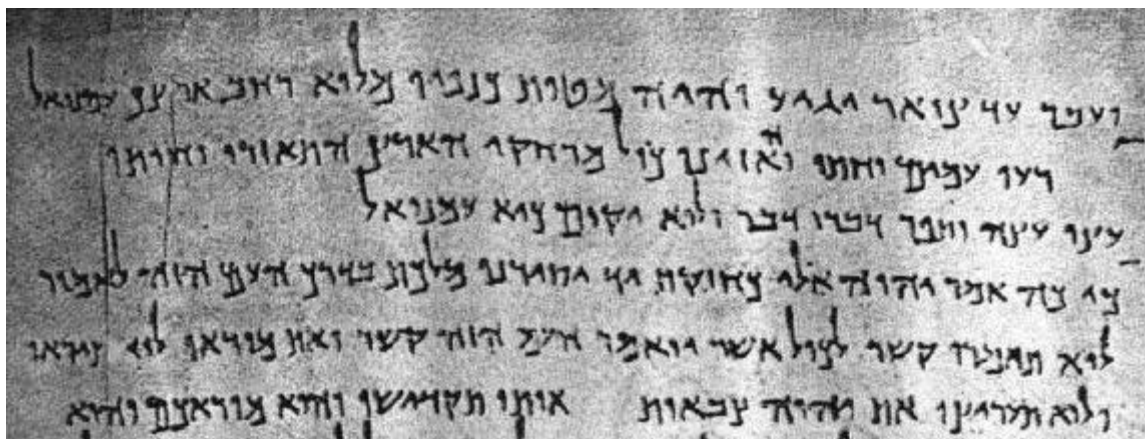 ועבר עד צואר יגיע והיה מטות כנפיו מלוא רחב ארצך עמנואל
רעו עמים וחתו והאזינו כול מרחקי הארץ התאזרו וחותו
עוצו עצה ותפר דברו דבר ולוא יקום כיא עמנואל
כי כה אמר יהוה אלי כחזקת יד יסירנו מלכת בדרך העם הזה לאמור
לוא תואמרון קשר לכול אשר יואמר העם הזה קשר ואת מוראו לוא תיראו
ולוא תעריצו את יהוה צבאות אותו תקדישו והוא מוראכם והוא